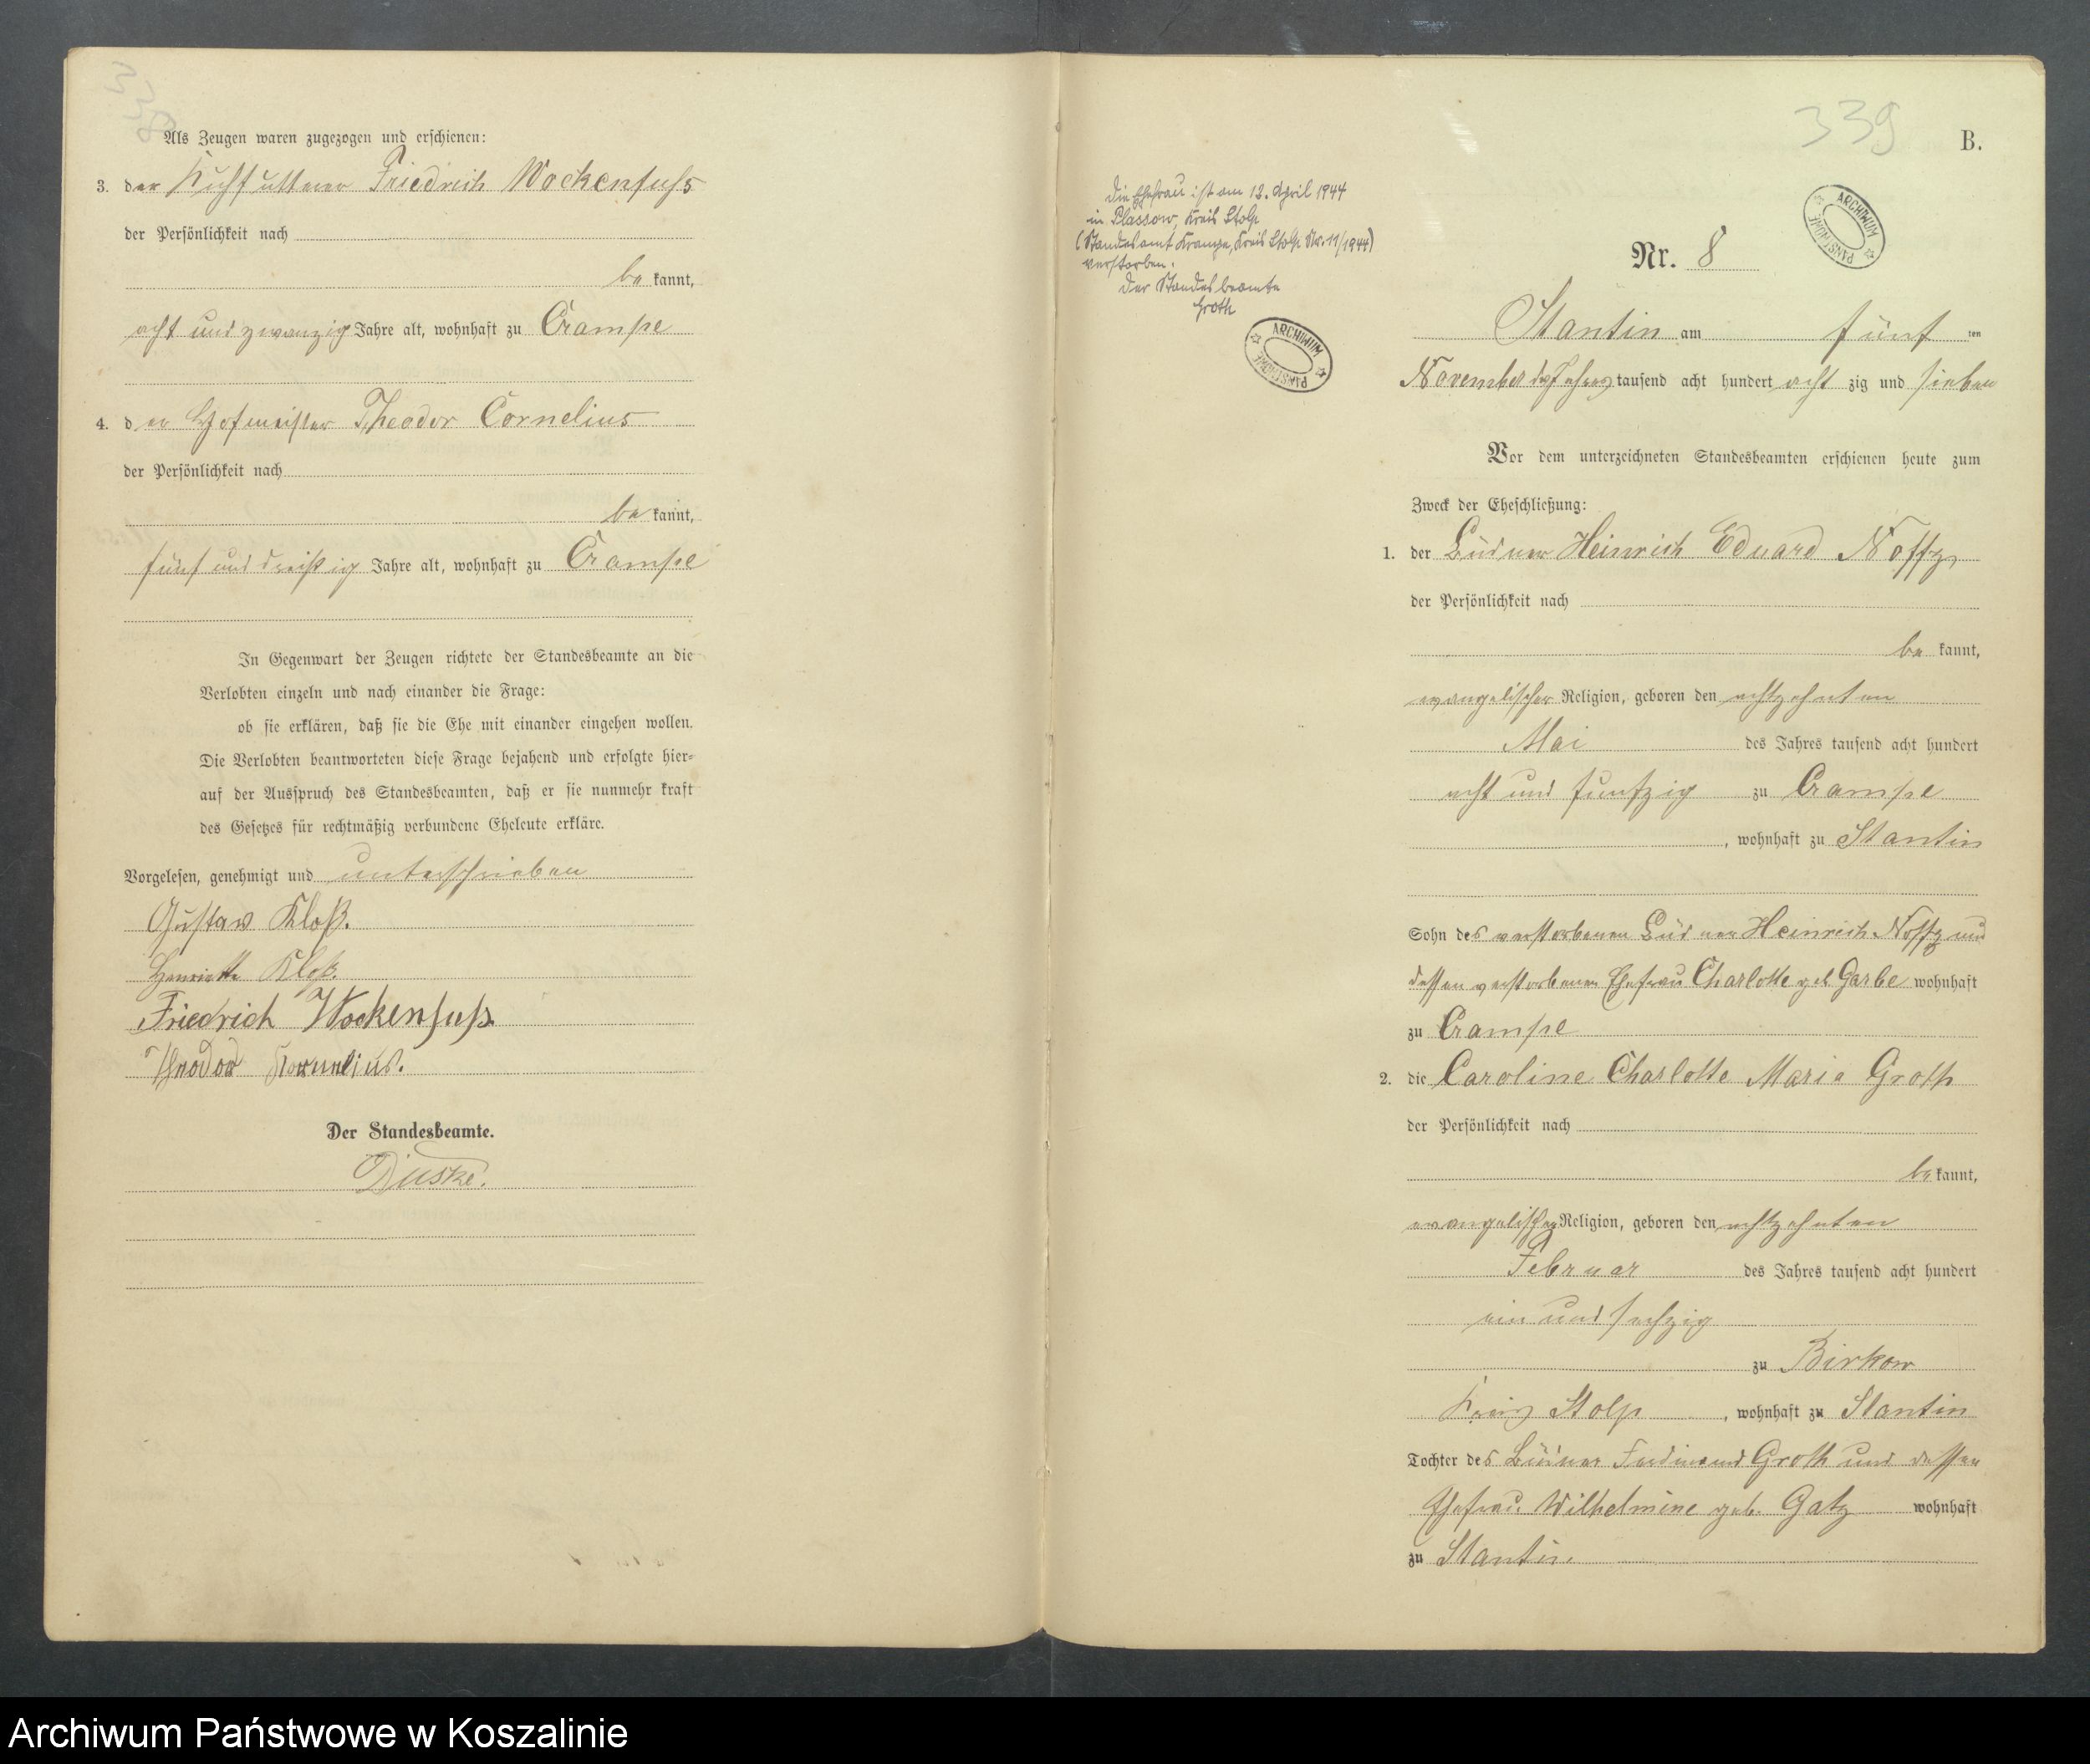 338
Als Zeugen waren zugezogen und erschienen:
3. der Kuhfutterer Friedrich Wockenfuhs
der Persönlichkeit nach
be kannt,
acht und zwanzig Jahre alt, wohnhaft zu Crampe
4. der Hofmeister Theodor Cornelius
der Persönlichkeit nach
be kannt,
fünf und dreißig Jahre alt, wohnhaft zu Crampe
In Gegenwart der Zeugen richtete der Standesbeamte an die
Verlobten einzeln und nach einander die Frage:
ob sie erklären, daß sie die Ehe mit einander eingehen wollen.
Die Verlobten beantworteten diese Frage bejahend und erfolgte hier-
auf der Ausspruch des Standesbeamten, daß er sie nunmehr kraft
des Gesetzes für rechtmäßig verbundene Eheleute erkläre.
Vorgelesen, genehmigt und unterschrieben
Gustav Kloß.
Henriette Kloß.
Friedrich Wockenfuß
Theodor Kornelius.
Der Standesbeamte.
Duske.
339
B.
Die Ehefrau ist am 12. April 1944
in Plassow, Kreis Stolp
(Standesamt Krampe, Kreis Stolp Nr. 11/1944)
verstorben.
Der Standesbeamte
Groth
ARCHIWUM PAŃSTWOWE
ARCHIWUM PAŃSTWOWE
Nr. 8
Stantin am fünf ten
November des Jahres tausend acht hundert acht zig und sieben
Vor dem unterzeichneten Standesbeamten erschienen heute zum
Zweck der Eheschließung:
1. der Büdner Heinrich Eduard Noffz,
der Persönlichkeit nach
be kannt,
evangelischer Religion, geboren den achtzehnten
Mai des Jahres tausend acht hundert
acht und funfzig zu Crampe
, wohnhaft zu Stantin
Sohn des verstorbenen Büdner Heinrich Noffz und
dessen verstorbenen Ehefrau Charlotte geb Garbe wohnhaft
zu Crampe
2. die Caroline Charlotte Marie Groth
der Persönlichkeit nach
be kannt,
evangelischer Religion, geboren den achtzehnten
Februar des Jahres tausend acht hundert
ein und sechzig
zu Birkow
Kreis Stolp , wohnhaft zu Stantin
Tochter des Büdner Ferdinand Groth und dessen
Ehefrau Wilhelmine geb. Gatz wohnhaft
zu Stantin.
Archiwum Państwowe w Koszalinie